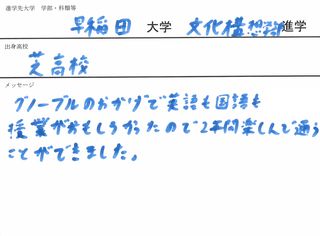 進学先大学 学部・科類等
早稲田 大学 文化構想 進学
出身高校
芝高校
メッセージ
グノーブルのおかげで英語も国語も
授業がおもしろかったので2年間楽しんで通う
ことができました。